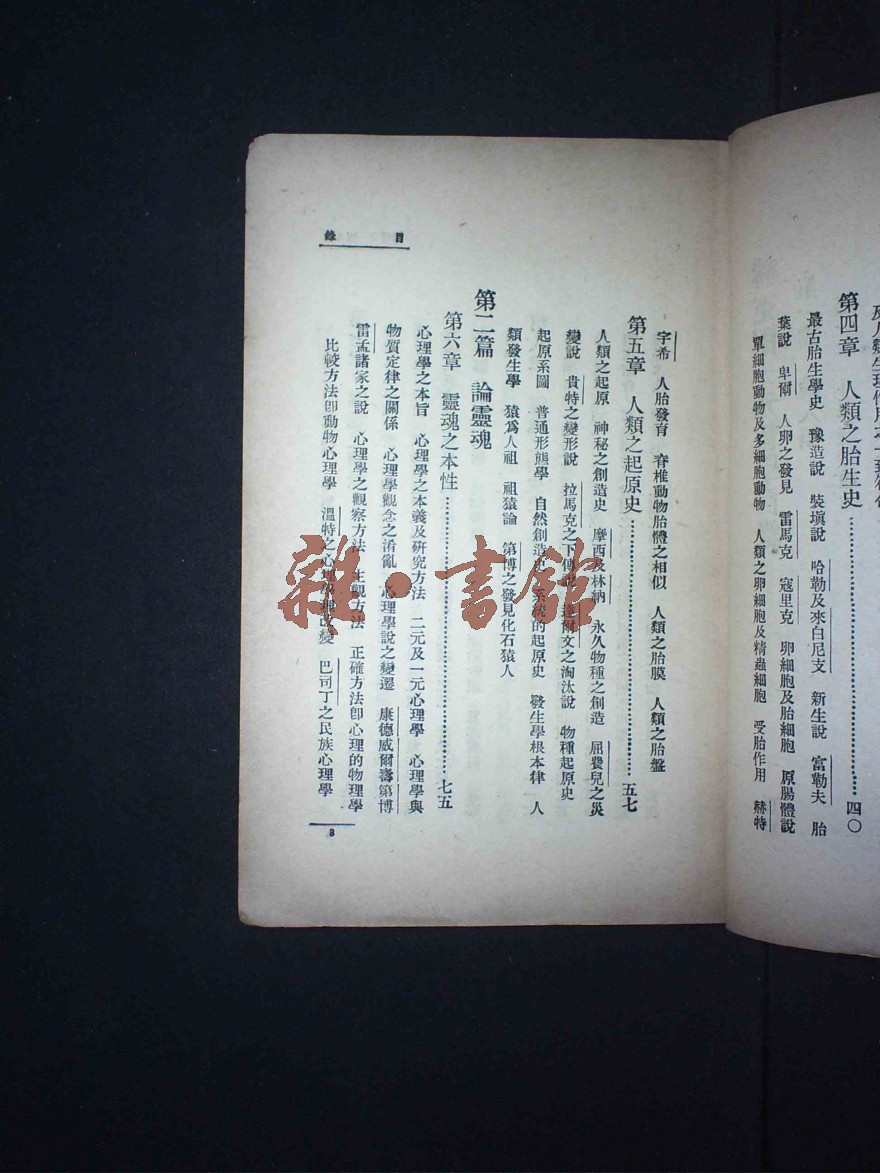 第四章 人類之胎生史……四〇
最古胎生學史 豫造說 裝塡說 哈勒及來白尼支 新生說 富勒夫 胎
葉說 卑爾 人卵之發見 雷馬克 寇里克 卵細胞及胎細胞 原腸體說
單細胞動物及多細胞動物 人類之卵細胞及精蟲細胞 受胎作用 赫特
目錄
宇希 人胎發育 脊椎動物胎體之相似 人類之胎膜 人類之胎盤
第五章 人類之起原史……五七
人類之起原 神秘之創造史 摩西及林納 永久物種之創造 屈費兒之災
變說 貴特之變形說 拉馬克之下傳說 達爾文之淘汰說 物種起原史
起原系圖 普通形態學 自然創造史 系統的起原史 發生學根本律 人
類發生學 猿爲人祖 祖猿論 第博之發見化石猿人
第二篇 論靈魂
第六章 靈魂之本性……七五
心理學之本旨 心理學之本義及研究方法 二元及一元心理學 心理學與
物質定律之關係 心理學觀念之淆亂 心理學說之變遷 康德威爾壽第博
雷孟諸家之說 心理學之觀察方法 主觀方法 正確方法卽心理的物理學
比較方法卽動物心理學 溫特之心理 巴司丁之民族心理學
3
雜·書館